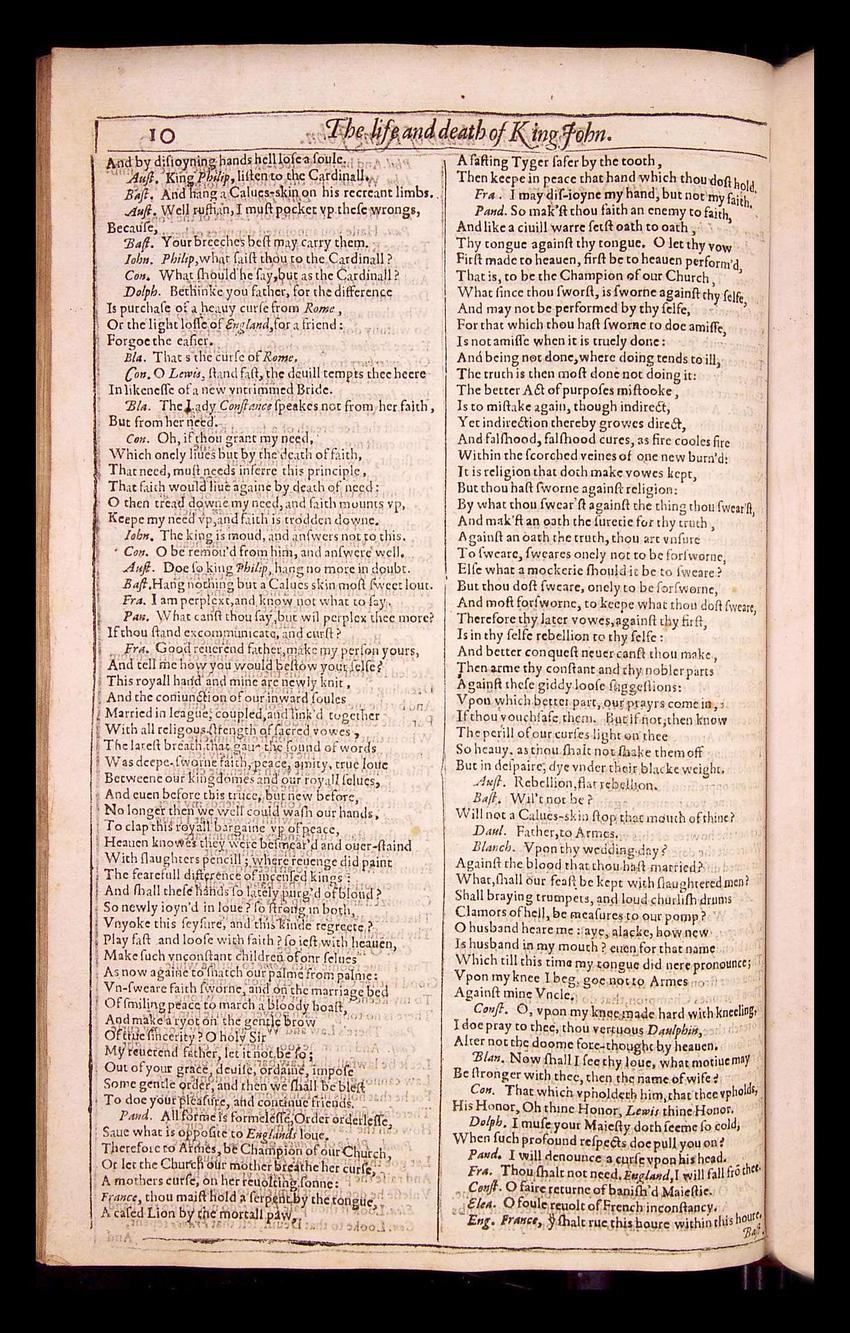 10
The life and death of King John.
And by disioyning hands hell lose a soule.
Aust. King Philip, listen to the Cardinall.
Bast. And hang a Calues-skin on his recreant limbs.
Aust. Well ruffian, I must pocket vp these wrongs,
Because,
Bast. Your breeches best may carry them.
Iohn. Philip, what saist thou to the Cardinall?
Con. What should he say, but as the Cardinall?
Dolph. Bethinke you father, for the difference
Is purchase of a heauy curse from Rome,
Or the light losse of England, for a friend:
Forgoe the easier.
Bla. That s the curse of Rome.
Con. O Lewis, stand fast, the deuill tempts thee heere
In likenesse of a new vntrimmed Bride.
Bla. The Lady Constance speakes not from her faith,
But from her need.
Con. Oh, if thou grant my need,
Which onely liues but by the death of faith,
That need, must needs inferre this principle,
That faith would liue againe by death of need:
O then tread downe my need, and faith mounts vp,
Keepe my need vp, and faith is trodden downe.
Iohn. The king is moud, and answers not to this.
Con. O be remou'd from him, and answere well.
Aust. Doe so king Philip, hang no more in doubt.
Bast. Hang nothing but a Calues skin most sweet lout.
Fra. I am perplext, and know not what to say.
Pan. What canst thou say, but wil perplex thee more?
If thou stand excommunicate, and curst?
Fra. Good reuerend father, make my person yours,
And tell me how you would bestow your selfe?
This royall hand and mine are newly knit,
And the coniunction of our inward soules
Married in league, coupled, and link'd together
With all religous strength of sacred vowes,
The latest breath that gaue the sound of words
Was deepe-sworne faith, peace, amity, true loue
Betweene our kingdomes and our royall selues,
And euen before this truce, but new before,
No longer then we well could wash our hands,
To clap this royall bargaine vp of peace,
Heauen knowes they were besmear'd and ouer-staind
With slaughters pencill; where reuenge did paint
The fearefull difference of incensed kings:
And shall these hands so lately purg'd of bloud?
So newly ioyn'd in loue? so strong in both,
Vnyoke this seysure, and this kinde regreete?
Play fast and loose with faith? so iest with heauen,
Make such vnconstant children of our selues
As now againe to snatch our palme from palme:
Vn-sweare faith sworne, and on the marriage bed
Of smiling peace to march a bloody hoast,
And make a ryot on the gentle brow
Of true sincerity? O holy Sir
My reuerend father, let it not be so;
Out of your grace, deuise, ordaine, impose
Some gentle order, and then we shall be blest
To doe your pleasure, and continue friends.
Pand. All forme is formelesse, Order orderlesse,
Saue what is opposite to Englands loue.
Therefore to Armes, be Champion of our Church,
Or let the Church our mother breathe her curse,
A mothers curse, on her reuolting sonne:
France, thou maist hold a serpent by the tongue,
A cased Lion by the mortall paw,
A fasting Tyger safer by the tooth,
Then keepe in peace that hand which thou dost hold.
Fra. I may dis-ioyne my hand, but not my faith.
Pand. So mak'st thou faith an enemy to faith,
And like a ciuill warre setst oath to oath,
Thy tongue against thy tongue. O let thy vow
First made to heauen, first be to heauen perform'd,
That is, to be the Champion of our Church,
What since thou sworst, is sworne against thy selfe,
And may not be performed by thy selfe,
For that which thou hast sworne to doe amisse,
Is not amisse when it is truely done:
And being not done, where doing tends to ill,
The truth is then most done not doing it:
The better Act of purposes mistooke,
Is to mistake again, though indirect,
Yet indirection thereby growes direct,
And falshood, falshood cures, as fire cooles fire
Within the scorched veines of one new burn'd:
It is religion that doth make vowes kept,
But thou hast sworne against religion:
By what thou swear'st against the thing thou swear'st,
And mak'st an oath the suretie for thy truth,
Against an oath the truth, thou art vnsure
To sweare, sweares onely not to be forsworne,
Else what a mockerie should it be to sweare?
But thou dost sweare, onely to be forsworne,
And most forsworne, to keepe what thou dost sweare,
Therefore thy later vowes, against thy first,
Is in thy selfe rebellion to thy selfe:
And better conquest neuer canst thou make,
Then arme thy constant and thy nobler parts
Against these giddy loose suggestions:
Vpon which better part, our prayrs come in,
If thou vouchsafe them. But if not, then know
The perill of our curses light on thee
So heauy, as thou shalt not shake them off
But in despaire, dye vnder their blacke weight.
Aust. Rebellion, flat rebellion.
Bast. Wil't not be?
Will not a Calues-skin stop that mouth of thine?
Daul. Father, to Armes.
Blanch. Vpon thy wedding day?
Against the blood that thou hast married?
What, shall our feast be kept with slaughtered men?
Shall braying trumpets, and loud churlish drums
Clamors of hell, be measures to our pomp?
O husband heare me: aye, alacke, how new
Is husband in my mouth? euen for that name
Which till this time my tongue did nere pronounce;
Vpon my knee I beg, goe not to Armes
Against mine Vncle.
Const. O, vpon my knee made hard with kneeling,
I doe pray to thee, thou vertuous Daulphin,
Alter not the doome fore-thought by heauen.
Blan. Now shall I see thy loue, what motiue may
Be stronger with thee, then the name of wife?
Con. That which vpholdeth him, that thee vpholds,
His Honor, Oh thine Honor, Lewis thine Honor.
Dolph. I muse your Maiesty doth seeme so cold,
When such profound respects doe pull you on?
Pand. I will denounce a curse vpon his head.
Fra. Thou shalt not need. England, I will fall frō thee.
Const. O faire returne of banish'd Maiestie.
Elea. O foule reuolt of French inconstancy.
Eng. France, ỹ shalt rue this houre within this houre.
Bast.